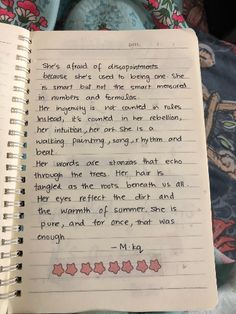 DATE:
She's afraid of dissapointments
because she's used to being one. She
is smart but not the smart measured
in numbers and formulas.
Her ingenuity is not counted in rules
Instead, it's counted in her rebellion,
her intuition, her art. She is a
walking painting, song, rhythm and
beat.
Her words are stanzas that echo
through the trees. Her hair is
tangled as the roots beneath us all.
Her eyes reflect the dirt and
the warmth of summer. She is
pure, and for once, that was
enough.
- M. kq